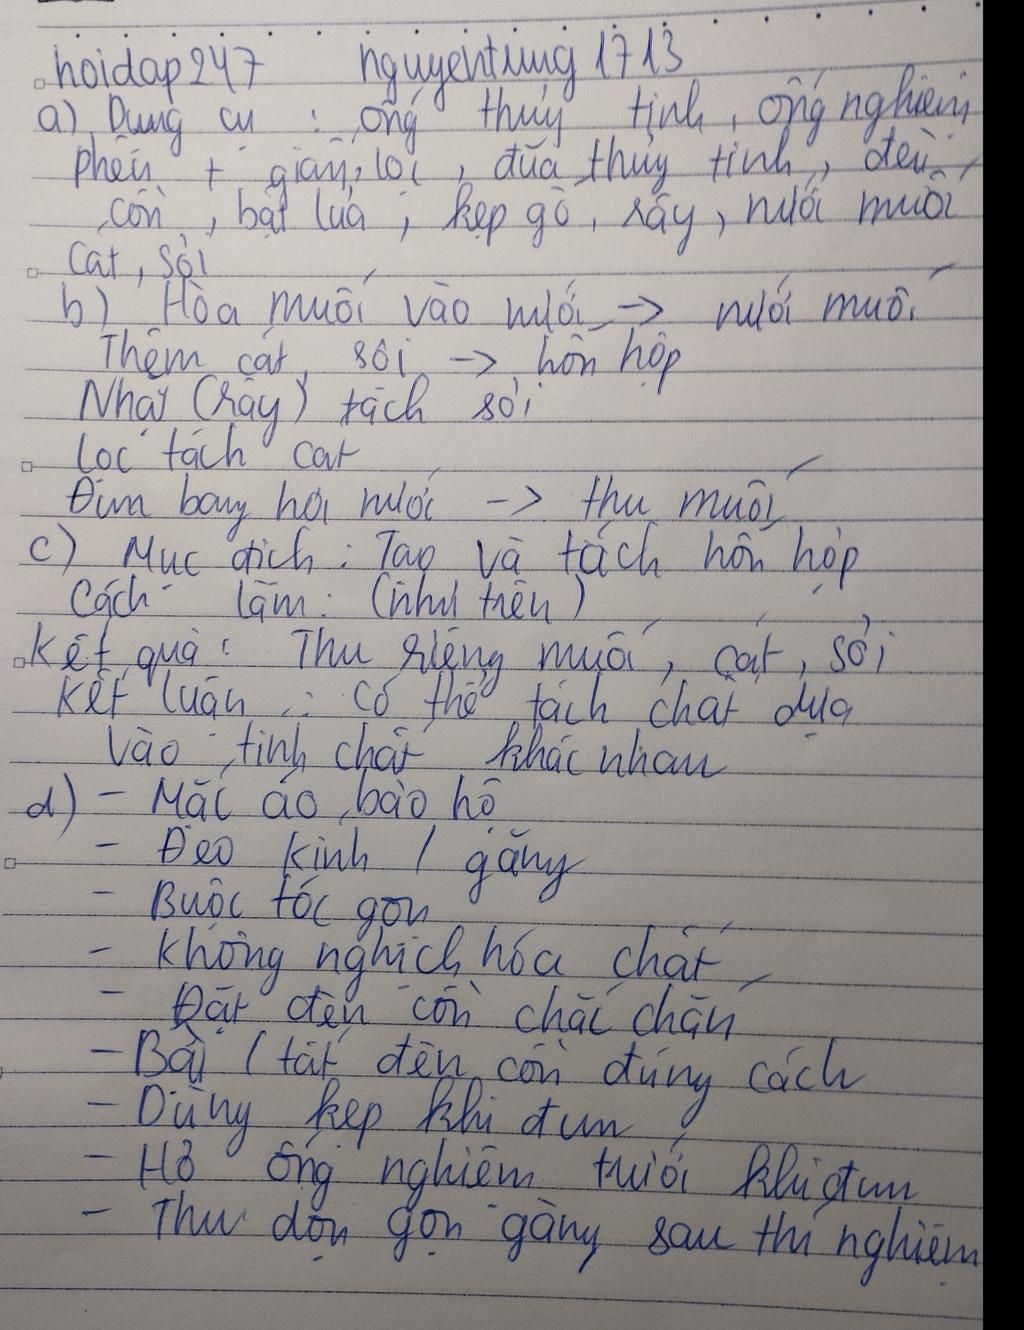 hoidap247 nguyentrung1713
a) Dụng cụ : ống thủy tinh, ống nghiệm
phễu + giấy lọc, đũa thủy tinh, đèn
cồn, bật lửa, kẹp gỗ, rây, nước muối
cát, sỏi
b) Hòa muối vào nước -> nước muối
Thêm cát, sỏi -> hỗn hợp
Nhặt (rây) tách sỏi
Lọc tách cát
Đun bay hơi nước -> thu muối
c) Mục đích : Tạo và tách hỗn hợp
Cách làm : (như trên)
Kết quả : Thu riêng muối, cát, sỏi
Kết luận : Có thể tách chất dựa
vào tính chất khác nhau
d) - Mặc áo bảo hộ
- Đeo kính / găng
- Buộc tóc gọn
- Không nghịch hóa chất
- Đặt đèn cồn chắc chắn
- Bật / tắt đèn cồn đúng cách
- Dùng kẹp khi đun
- Hơ ống nghiệm trước khi đun
- Thu dọn gọn gàng sau thí nghiệm